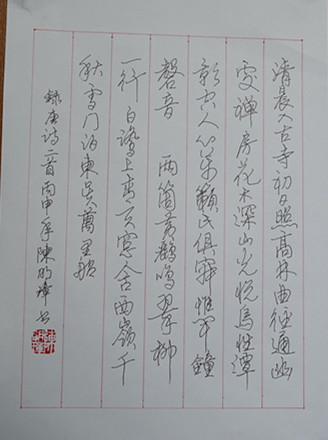 清晨入古寺初日照高林曲径通幽
處禅房花木深山光悦鳥性潭
影空人心萬籟此俱寂惟闻鐘
磬音 两箇黄鸝鳴翠柳
一行白鹭上青天窓含西嶺千
秋雪门泊東吴萬里船
錄唐诗二首丙申年陳明璋书